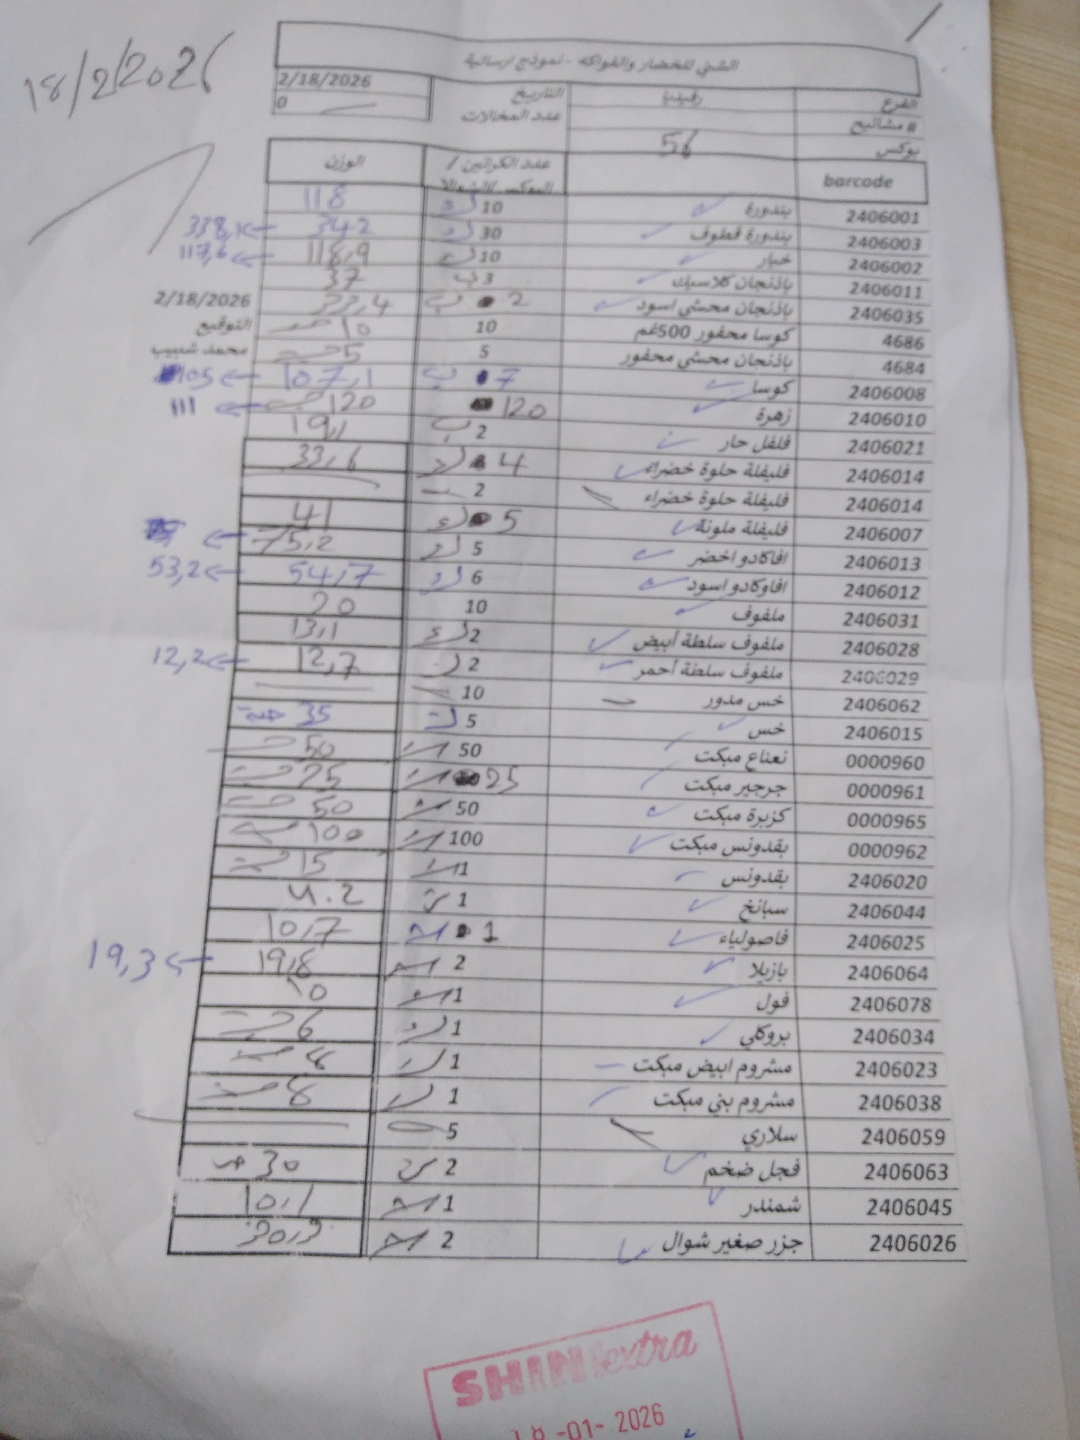 18/2/2026
الشني للخضار والفواكه - نموذج ارسالية
الفرع رفيديا التاريخ 2/18/2026
# مشاتيح عدد المخالات 0
بوكس 56
barcode عدد الكراتين / الوزن
2406001 بندورة 10 118
2406003 بندورة قطوف 30 342 338,1
2406002 خيار 10 118,9 117,6
2406011 باذنجان كلاسيك 3 ب 37
2406035 باذنجان محشي اسود 2 ب 2/18/2026
4686 كوسا محفور 500غم 10 10 حبة التوقيع
4684 باذنجان محشي محفور 5 5 حبة محمد شبيب
2406008 كوسا 7 ب 107,1 105
2406010 زهرة 120 120 حبة 111
2406021 فلفل حار 2 ب 19,1
2406014 فليفلة حلوة خضراء 4 33,6
2406014 فليفلة حلوة خضراء 2
2406007 فليفلة ملونة 5 41
2406013 افاكادو اخضر 5 75,2
2406012 افاوكادو اسود 6 54,7 53,2
2406031 ملفوف 10 20
2406028 ملفوف سلطة أبيض 2 13,1
2406029 ملفوف سلطة أحمر 2 12,7 12,2
2406062 خس مدور 10
2406015 خس 5 35 حبة
0000960 نعناع مبكت 50 50
0000961 جرجير مبكت 25 25
0000965 كزبرة مبكت 50 50
0000962 بقدونس مبكت 100 100
2406020 بقدونس 1 15
2406044 سبانخ 1 4.2
2406025 فاصولياء 1 10,7
2406064 بازيلا 2 19,8 19,3
2406078 فول 1 10
2406034 بروكلي 1 6
2406023 مشروم ابيض مبكت 1 8
2406038 مشروم بني مبكت 1 8
2406059 سلاري 5
2406063 فجل ضخم 2 30
2406045 شمندر 1 10,1
2406026 جزر صغير شوال 2 30,3
SHINI extra
18 -01- 2026